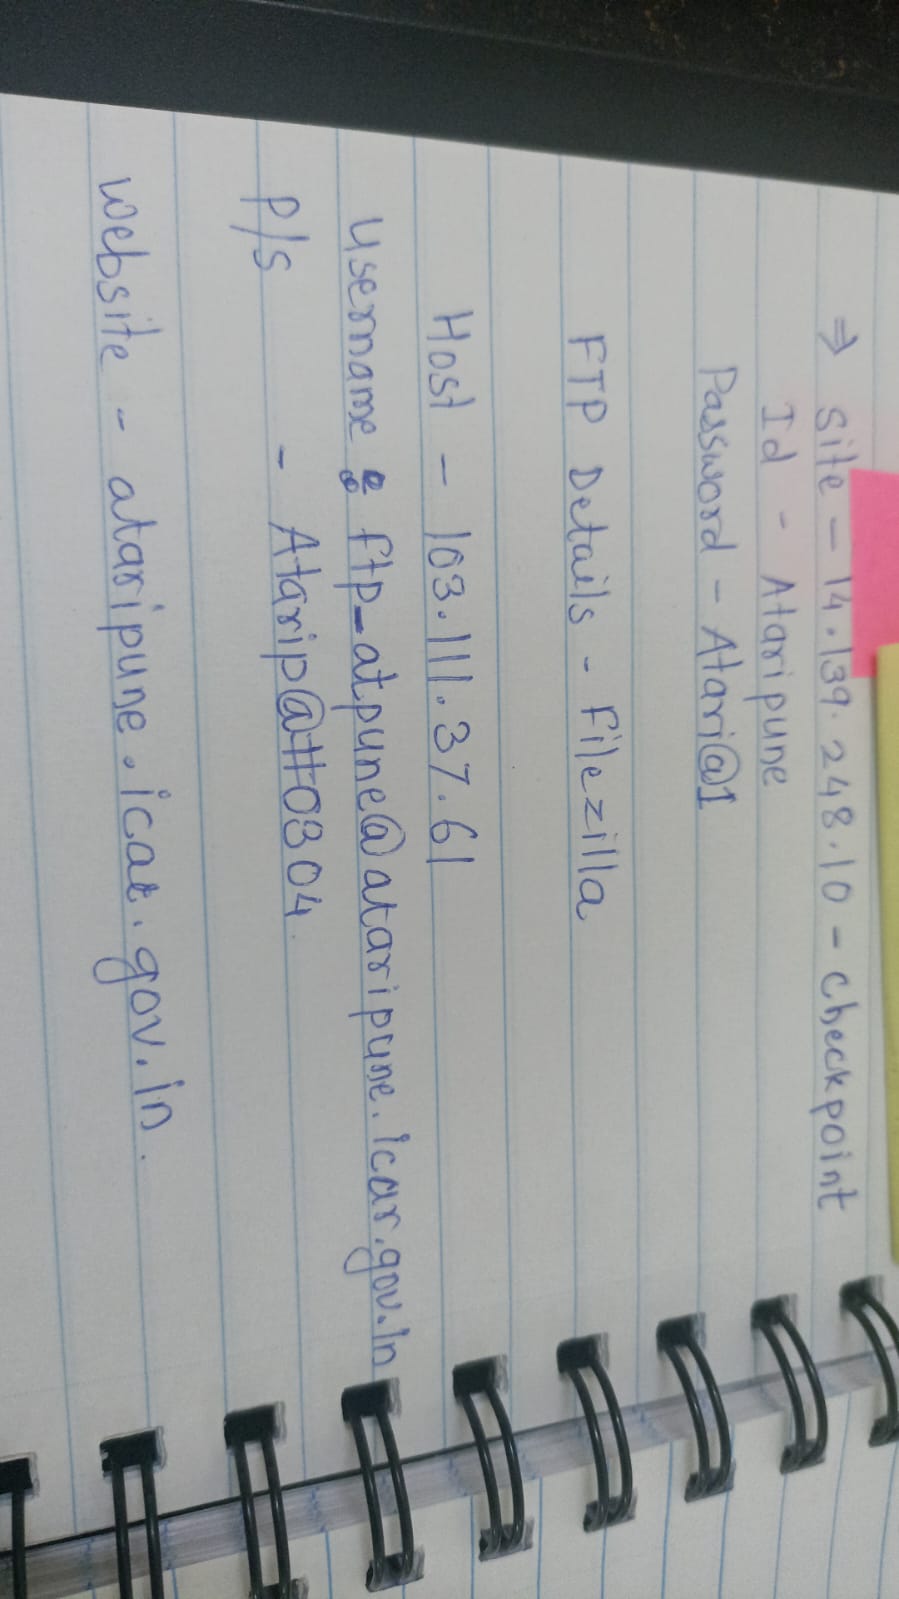 ⇒ Site - 14.139.248.10 - checkpoint
Id - Ataripune
Password - Atari@1
FTP Details - Filezilla
Host - 103.111.37.61
Username : ftp_atpune@ataripune.icar.gov.in
P/s - Atarip@tt0304.
website - ataripune.icar.gov.in.